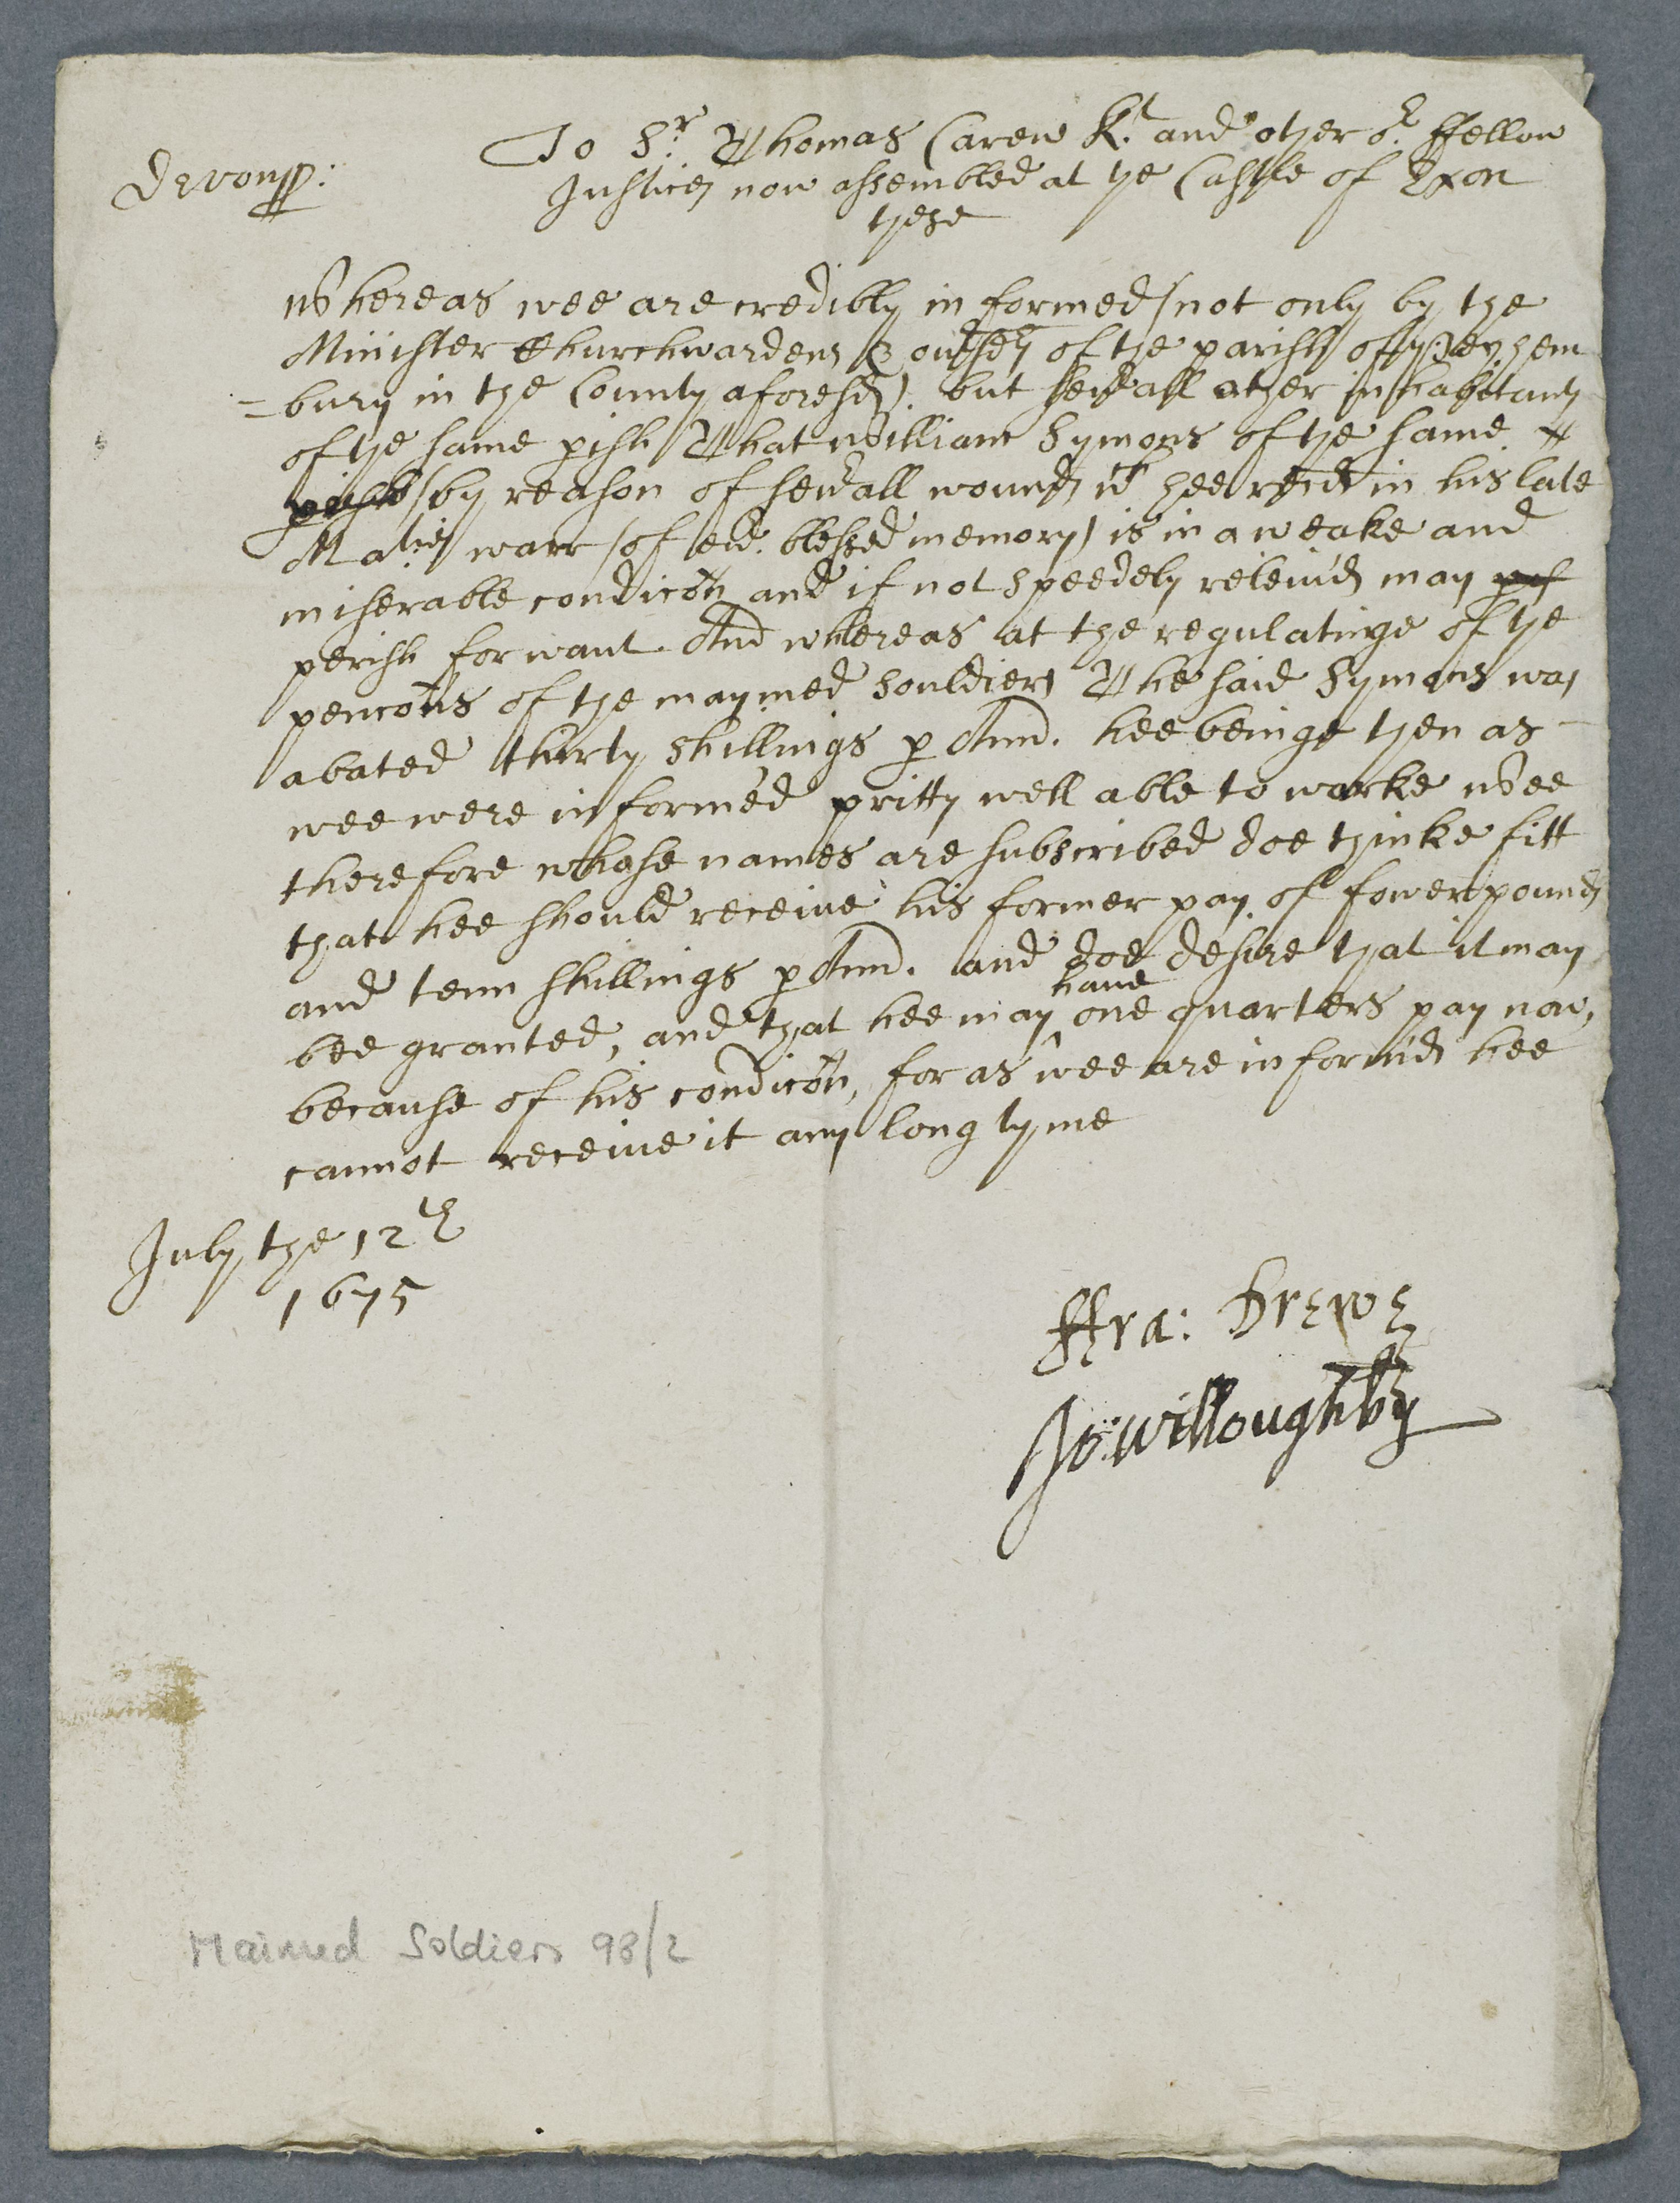 Devon ss:
To Sr. Thomas Carew Kt. and other or. ffellow
Justices now assembled at ye Castle of Exon
these
Whereas wee are credibly informed (not only by the
Minister Churchwardens & ouerseers of the parish of Peyhem
=bury in the County aforesd). but seuerall other inhabitants
of the same pish That William Symons of the same
pish (by reason of seuerall wounds wch hee recd in his late
Maties warr (of euer blessed memory) is in a weake and
miserable condicon and if not speedely releiu'd may
perish for want. And whereas at the regulatinge of the
pencons of the maymed souldiers The said Symons was
abated thirty shillings p Ann. hee beinge then as
wee were inform'ed pritty well able to worke Wee
therefore whose names are subscribed doe thinke fitt
that hee should receiue his former pay of fower pounds
and tenn shillings p Ann. and doe desire that it may
bee granted, and that hee may ^have one quarters pay now,
because of his condicon, for as wee are inform'd hee
cannot receiue it any long tyme
July the 12th
1675
ffra: Drewe
Jo: Willoughby
Maimed Soldiers 98/2